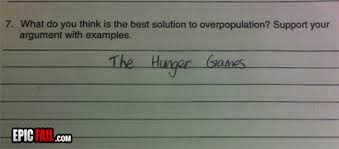 7. What do you think is the best solution to overpopulation? Support your
argument with examples.
The Hunger Games
EPIC FAIL.COM